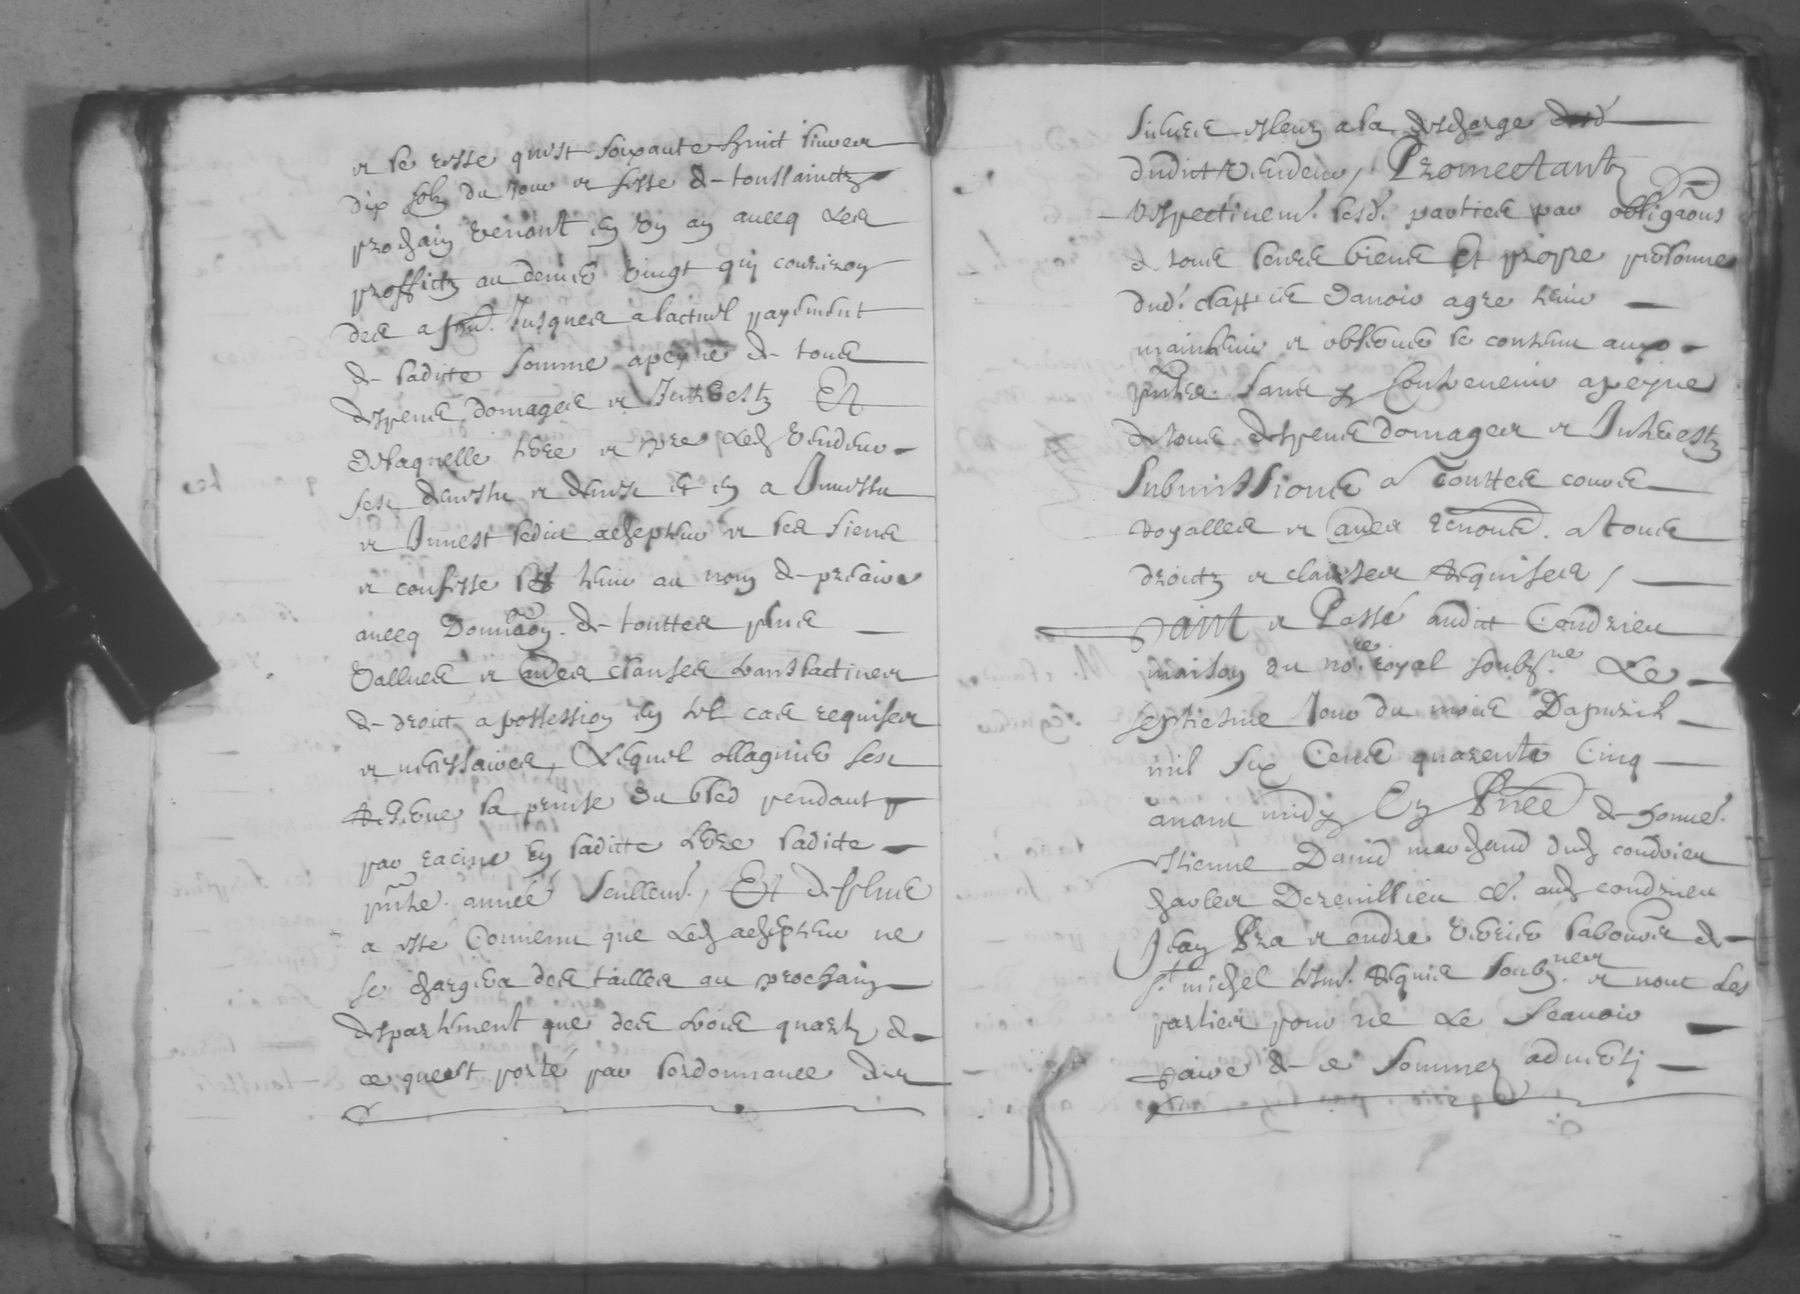 et le reste quest soixante huict livres
dix solz du jour et feste de toussainctz
prochain venant en un an avecq les
proffictz au denier vingt qui couriron
des a pnt. Jusques a lactuel payement
de laditte somme a peyne de tous
despens domages et Interestz Et
de laquelle terre et pre led vendeur
sest devestu et demis et en a Investu
et Invest ledict achepteur et les siens
et confesse tenir au nom de precaire
avecq Donnaon. de touttes plus
vallues et aues clauses translactives
de droict et possession en tel cas requises
et necessaires, Lequel ollagnier sest
reserve la prinse du bled pendant
par racine en laditte terre ladicte
pnte. année seullemt., Et de plus
a esté Convenu que led achepteur ne
se chargera des tailles au prochain
despartement que des trois quartz de
ce quest porté par lordonnance des
sieurs esleuz a la descharge
dudict vendeur, Promectantz
respectivemt. lesd. parties par obligaons
de tous leurs biens Et propre personne
dud. d'avoir agre tenir
maintenir et observer le contenu aux
pntes. sans y contrevenir a peyne
de tous despens domages et Interestz
Submissions a touttes cours
royalles et aues renonce. a tous
droictz et clauses requises,
Faict et Passé audict Condrieu
maison du nore. royal soubzne. Le
septiesme Jour du mois Dapvril
mil six Cens quarente Cinq
avant midy En Pnce de honne.
estienne David marchand dud condrieu
Jean Pra et andre verrier laboureurs de
st. michel tesm. requis soubznes. et nont les
parties pour ne le scavoir
faire de ce sommez